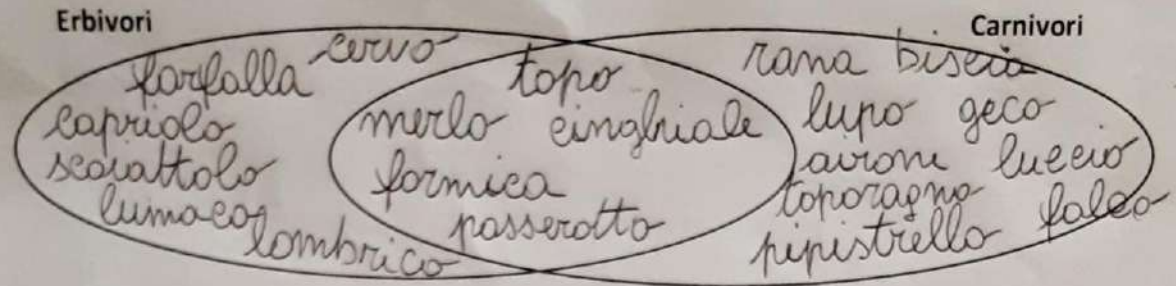 Erbivori
Carnivori
farfalla cervo
capriolo
scoiattolo
lumaca
lombrico
topo
merlo cinghiale
formica
passerotto
rana biscia
lupo geco
airone luccio
toporagno falco
pipistrello